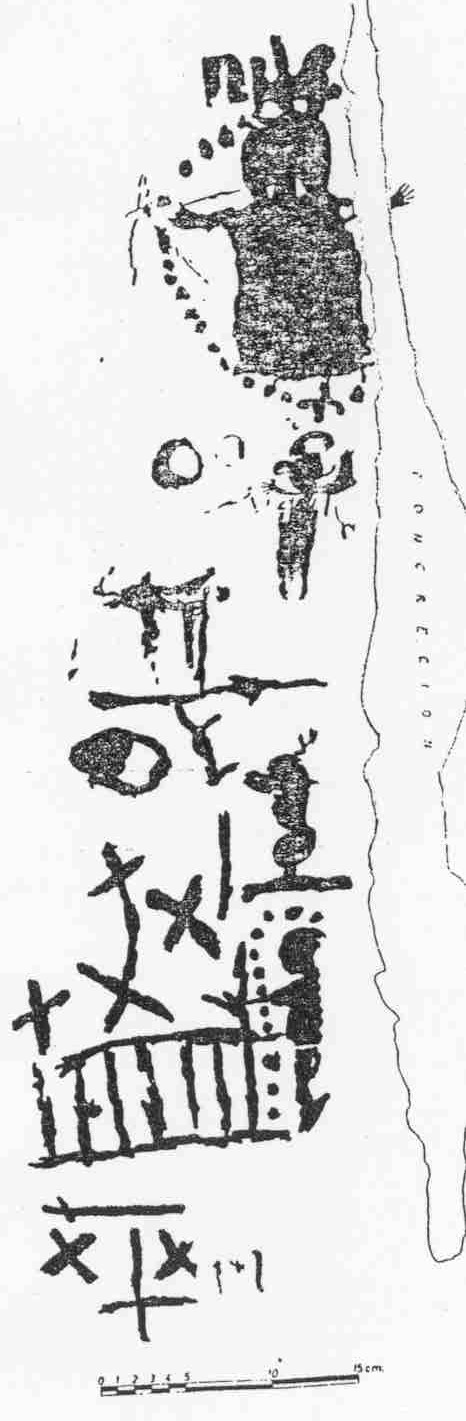 CONCRECION
0 1 2 3 4 5 10 15 cm.